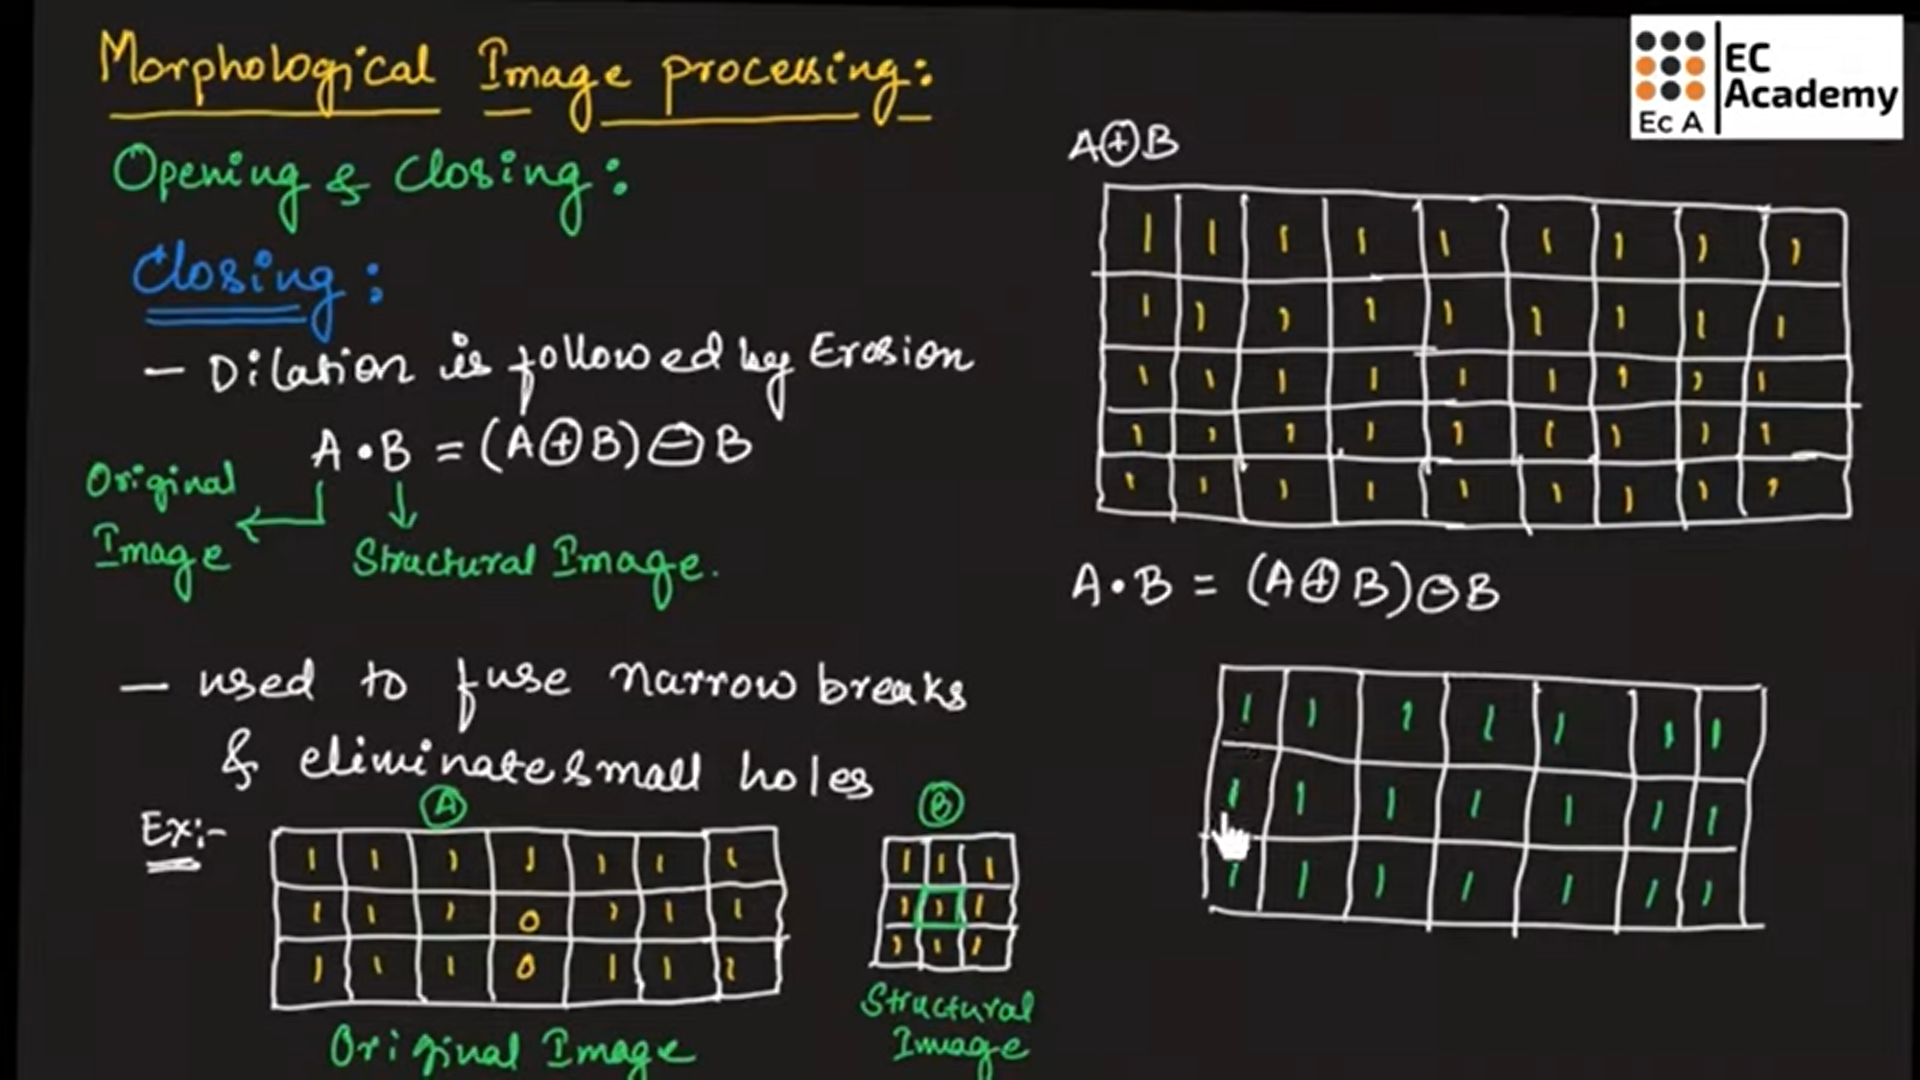 Morphological Image processing:
Opening & Closing:
Closing:
- Dilation is followed by Erosion
A • B = (A⊕B)⊖B
Original
Image
Structural Image.
- used to fuse narrow breaks
& eliminate small holes
Ex:-
A
1 1 1 1 1 1 1
1 1 1 0 1 1 1
1 1 1 0 1 1 1
Original Image
B
1 1 1
1 1 1
1 1 1
Structural
Image
EC
Academy
Ec A
A⊕B
1 1 1 1 1 1 1 1 1
1 1 1 1 1 1 1 1 1
1 1 1 1 1 1 1 1 1
1 1 1 1 1 1 1 1 1
1 1 1 1 1 1 1 1 1
A • B = (A⊕B)⊖B
1 1 1 1 1 1 1
1 1 1 1 1 1 1
1 1 1 1 1 1 1